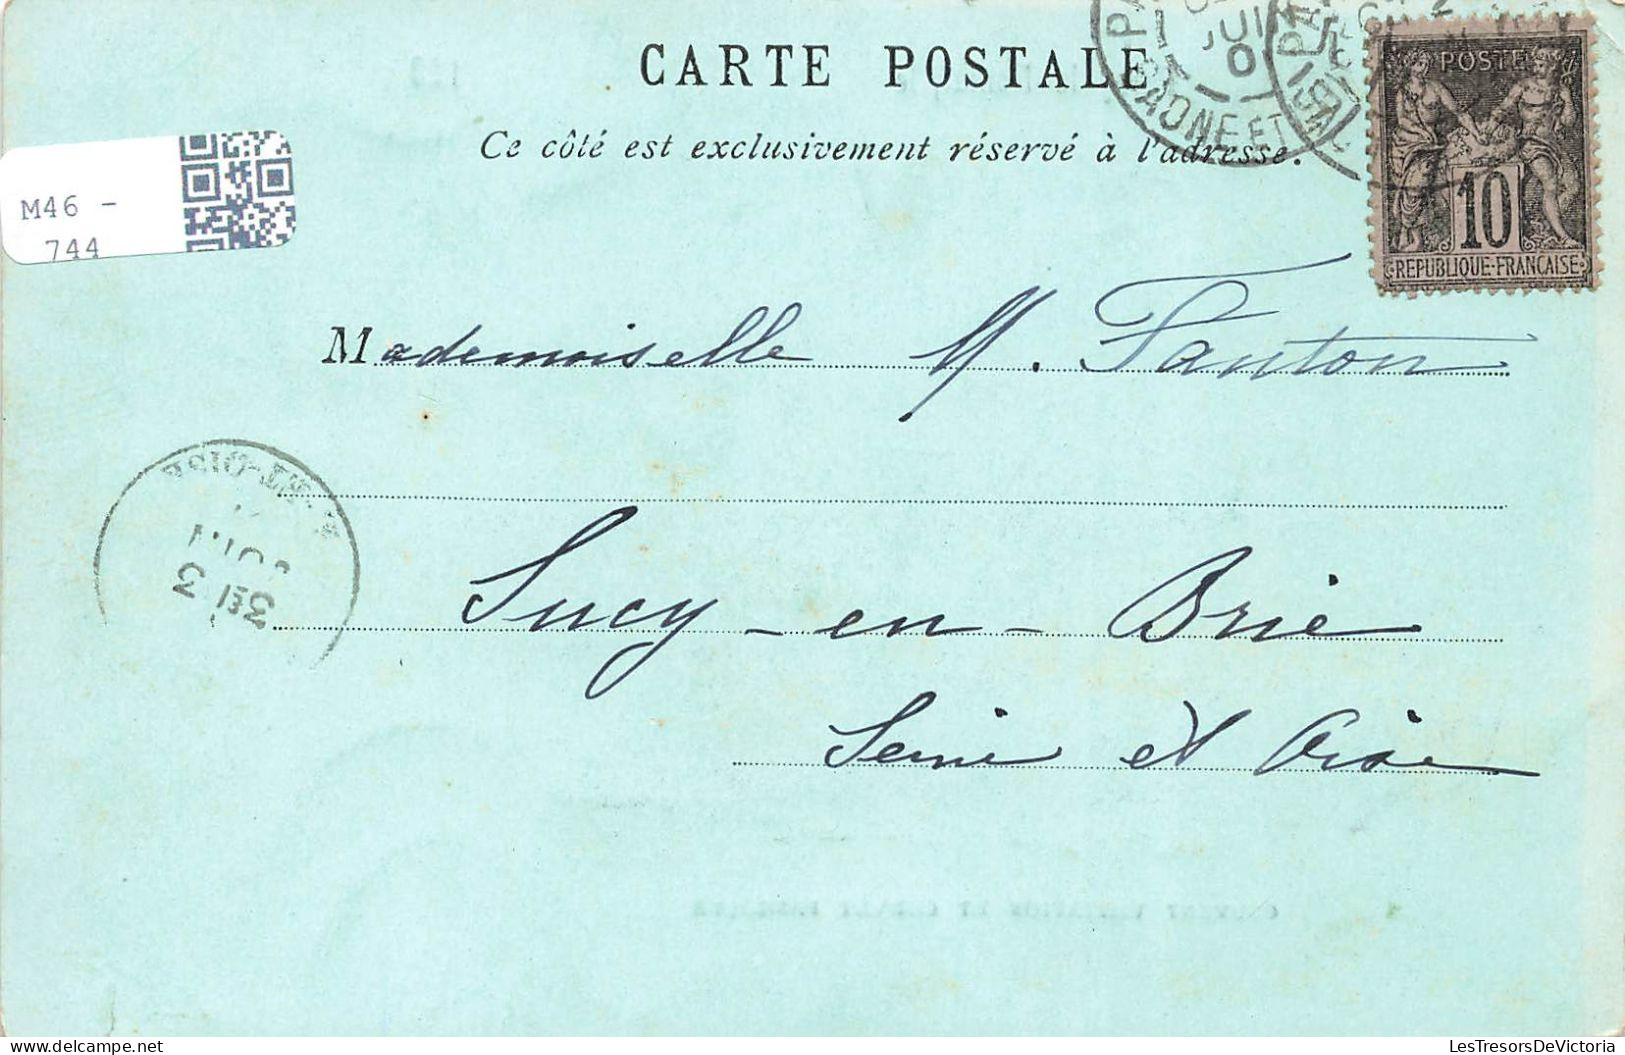 CARTE POSTALE
Ce côté est exclusivement réservé à l'adresse.
POSTE
10
REPUBLIQUE-FRANÇAISE
M46 -
744
Mademoiselle M. Fanton
Sucy-en-Brie
Seine et Oise
ET-OISE
3
LesTresorsDeVictoria
www.delcampe.net